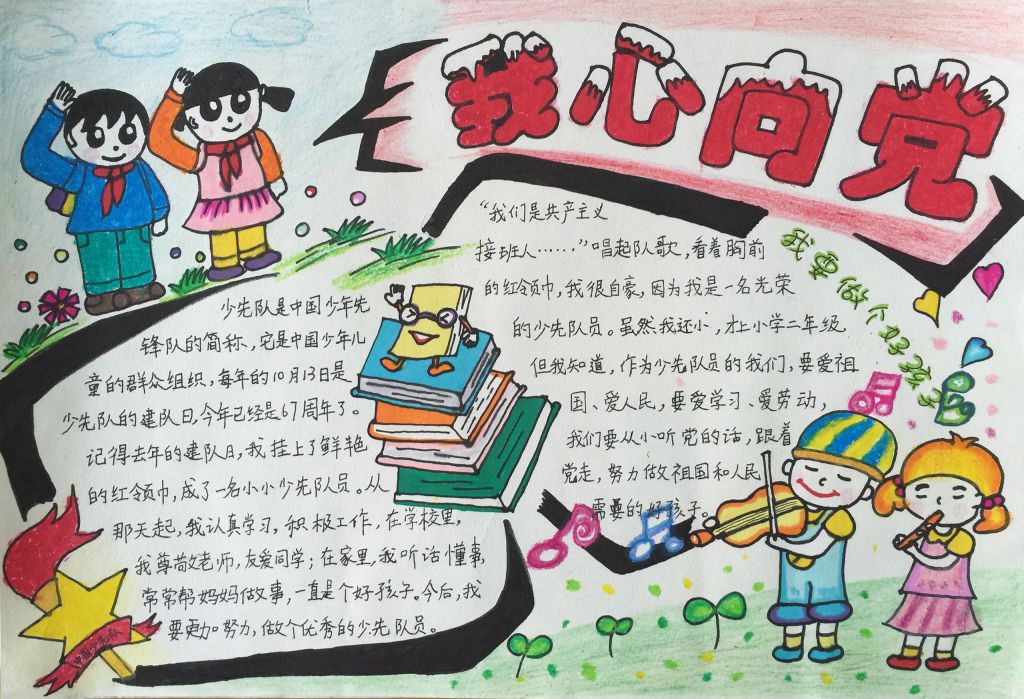 我心向党
少先队是中国少年先
锋队的简称，它是中国少年儿
童的群众组织，每年的10月13日是
少先队的建队日，今年已经是67周年了。
记得去年的建队日，我挂上了鲜艳
的红领巾，成了一名小小少先队员。从
那天起，我认真学习，积极工作，在学校里，
我尊敬老师，友爱同学；在家里，我听话懂事，
常常帮妈妈做事，一直是个好孩子。今后，我
要更加努力，做个优秀的少先队员。
“我们是共产主义
接班人……”唱起队歌，看着胸前
的红领巾，我很自豪，因为我是一名光荣
的少先队员。虽然我还小，才上小学二年级
但我知道，作为少先队员的我们，要爱祖
国、爱人民，要爱学习、爱劳动，
我们要从小听党的话，跟着
党走，努力做祖国和人民
需要的好孩子。
我要做个好孩子
中国少先队